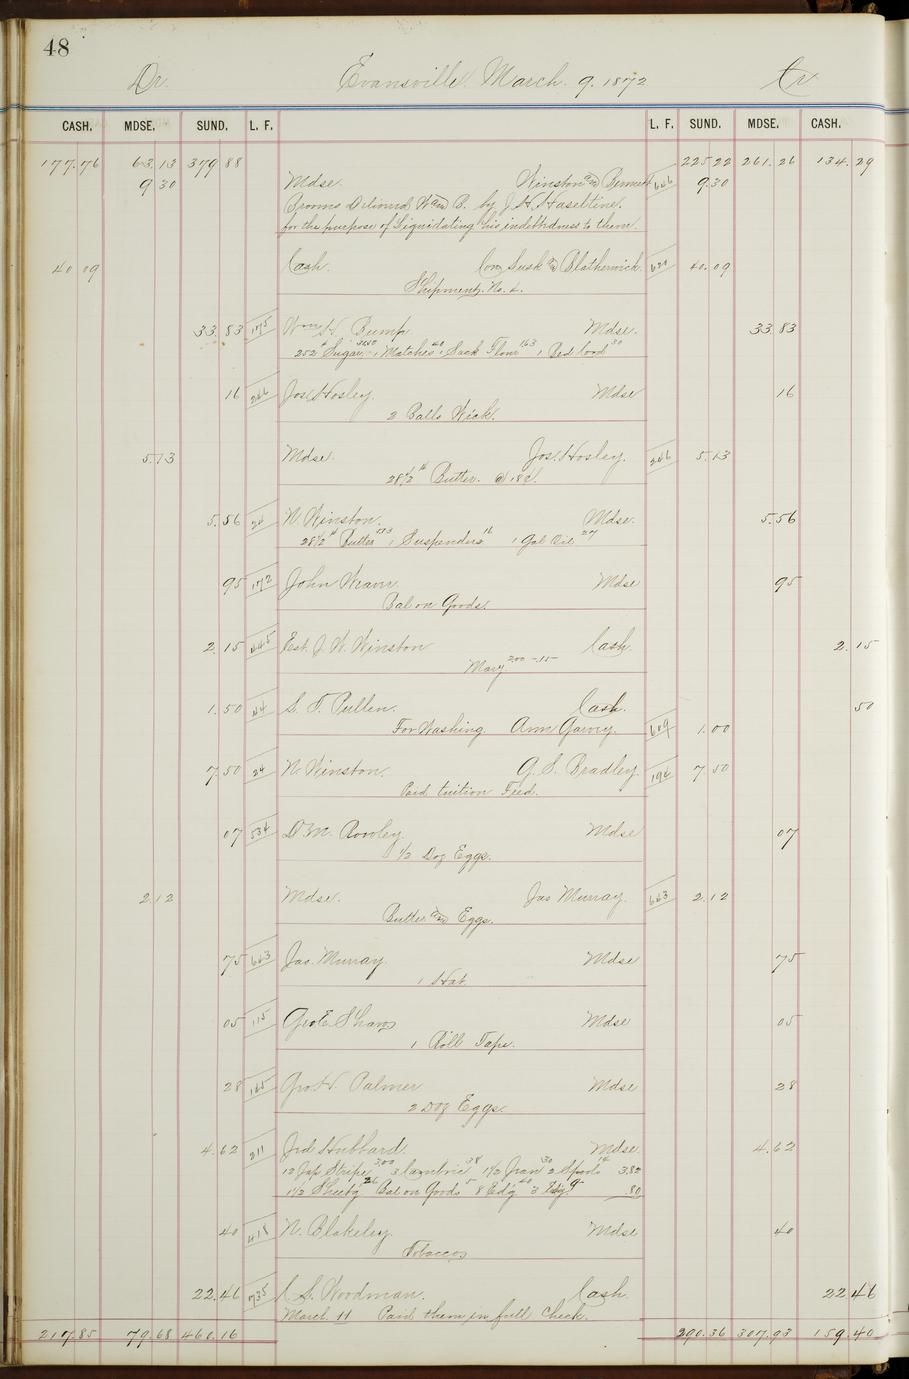 48
Dr. Evansville March. 9. 1872 Cr
CASH. MDSE. SUND. L. F. L. F. SUND. MDSE. CASH.
177.76 63.13 379 88 225 22 261.26 134.29
9 30 Mdse. Winston and Bennett 646 9.30
Brooms Delivered W and B. by J. H. Haseltine.
for the purpose of Liquidating his indebtedness to them.
40 09 Cash. Com Lusk & Blatherwick. 40.09
Shipment. No. 2.
33.83 175 Wm H. Bump Mdse. 33.83
252# Sugar 1 Matches 40 1 Sack Flour 163 1 Bed Cord 30
16 246 Jos. Hosley. Mdse 16
2 Balls Wick.
5.13 Mdse. Jos. Hosley. 246 5.13
28 1/2 # Butter. @ 18¢.
5.56 24 N. Winston. Mdse. 5.56
28 1/2 # Butter 513 1 Suspenders 16 1 Gal Oil 27
95 172 John Mdse 95
Bal on Goods.
2.15 445 Est. J. W. Winston Cash. 2.15
Mary 200 - .15
1.50 44 S. T. Pullen. Cash. 50
For Washing Ann Garvey. 609 1.00
7 50 24 N. Winston. G. S. Bradley. 194 7.50
Paid tuition Fred.
07 534 D. M. Rowley. Mdse 07
1/2 Doz Eggs.
2.12 Mdse. Jas Murray. 663 2.12
Butter and Eggs.
75 663 Jas. Murray. Mdse 75
1 Hat.
05 115 Geo E Shaw Mdse 05
1 Roll Tape.
28 165 Geo W. Palmer Mdse 28
2 Doz Eggs.
4.62 211 Jed Hubbard. Mdse. 4.62
12 Jap Stripe 3.00 3 Cambric 38 1 1/2 Jean 30 2 Spools 14 3.82
1 1/2 Sheetg 26 Bal on Goods 5 8 Edg 40 3 Edg 9 .80
40 418 N. Blakeley. Mdse 40
Tobacco
22.46 735 C. S. Woodman. Cash. 22 46
March 11 Paid them in full Check.
217.85 79.68 460.16 290.36 307.93 159.40